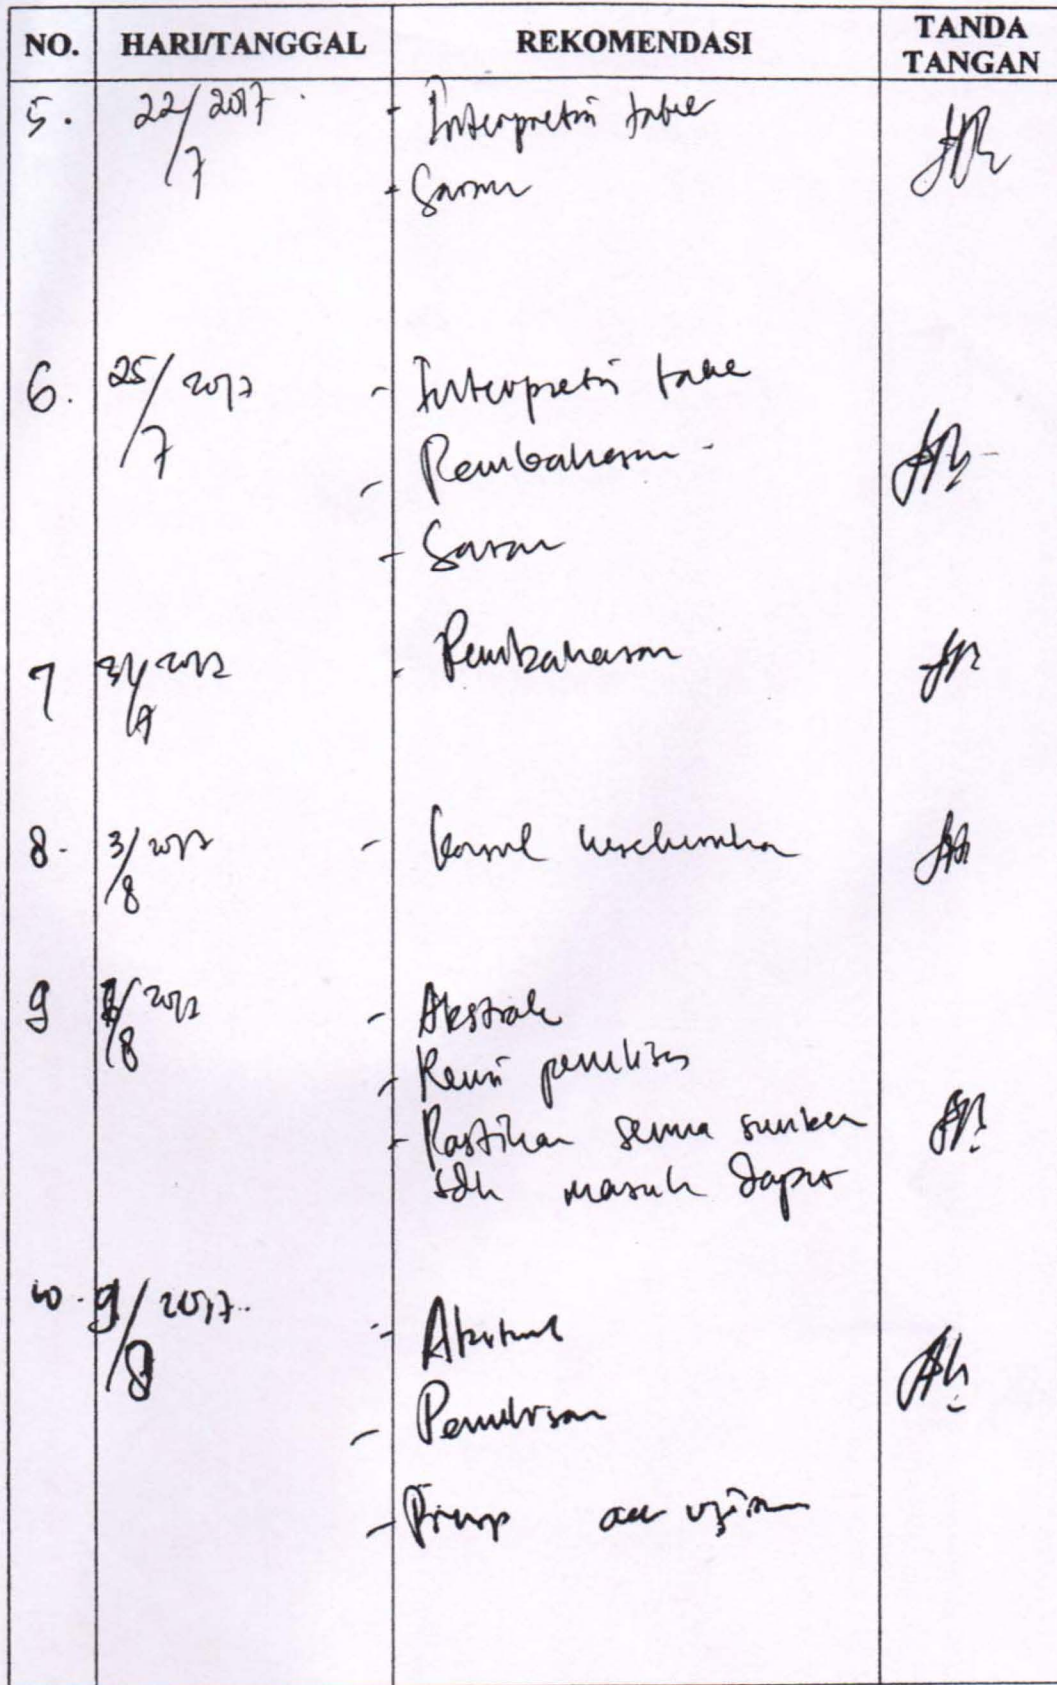 NO. HARI/TANGGAL REKOMENDASI TANDA TANGAN
5. 22/7 2017 - Interpretasi tabel
- Saran
6. 25/7 2017 - Interpretasi tabel
- Pembahasan
- Saran
7 31/7 2017 - Pembahasan
8. 3/8 2017 - Konsul keseluruhan
9 /8 2017 - Abstrak
- Revisi penulisan
- Pastikan semua sumber
sdh masuk Dapus
10. 9/8 2017. - Abstrak
- Penulisan
- Prinsip acc ujian